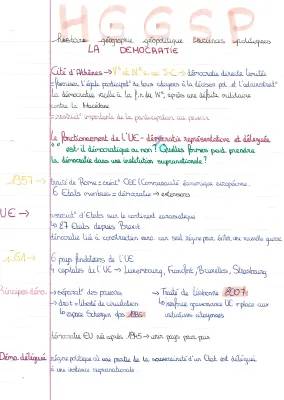 HGGSP
histoire géographie géopolitique sciences politiques
LA DEMOCRATIE
Cité d'Athènes → V° et IV° s. av J-C → démocratie directe limitée
= favorise l'égale participat° de tous citoyens à la décision pol et l'administrat°
la démocratie vacille à la fin du IV°, après une défaite militaire
contre la Macédoine
= restrict° importante de la participation au pouvoir
Le fonctionnement de l'UE - démocratie représentative et déléguée
est-il démocratique ou non ? Quelles formes peut prendre
la démocratie dans une institution supranationale ?
1957 → traité de Rome = créat° CEE (Communauté économique européenne
6 Etats membres = démocratie → extensions
UE → associat° d'Etats sur le continent européen
↳ 27 Etats depuis Brexit
démocratie liée à construction euro car seul régime pour éviter une nouvelle guerre
6 pays fondateurs de l'UE
4 capitales de l'UE → Luxembourg, Francfort, Bruxelles, Strasbourg
Principes démo → séparat° des pouvoirs → Traité de Lisbonne 2007
→ droit + liberté de circulation ↳ renforce gouvernance UE + place aux
↳ espace Schengen dps 1985 initiatives citoyennes
démocratie EU née après 1945 → unir pays pour paix
Démo déléguée régime politique où une partie de la souveraineté d'un Etat est délégué
à une instance supranationale